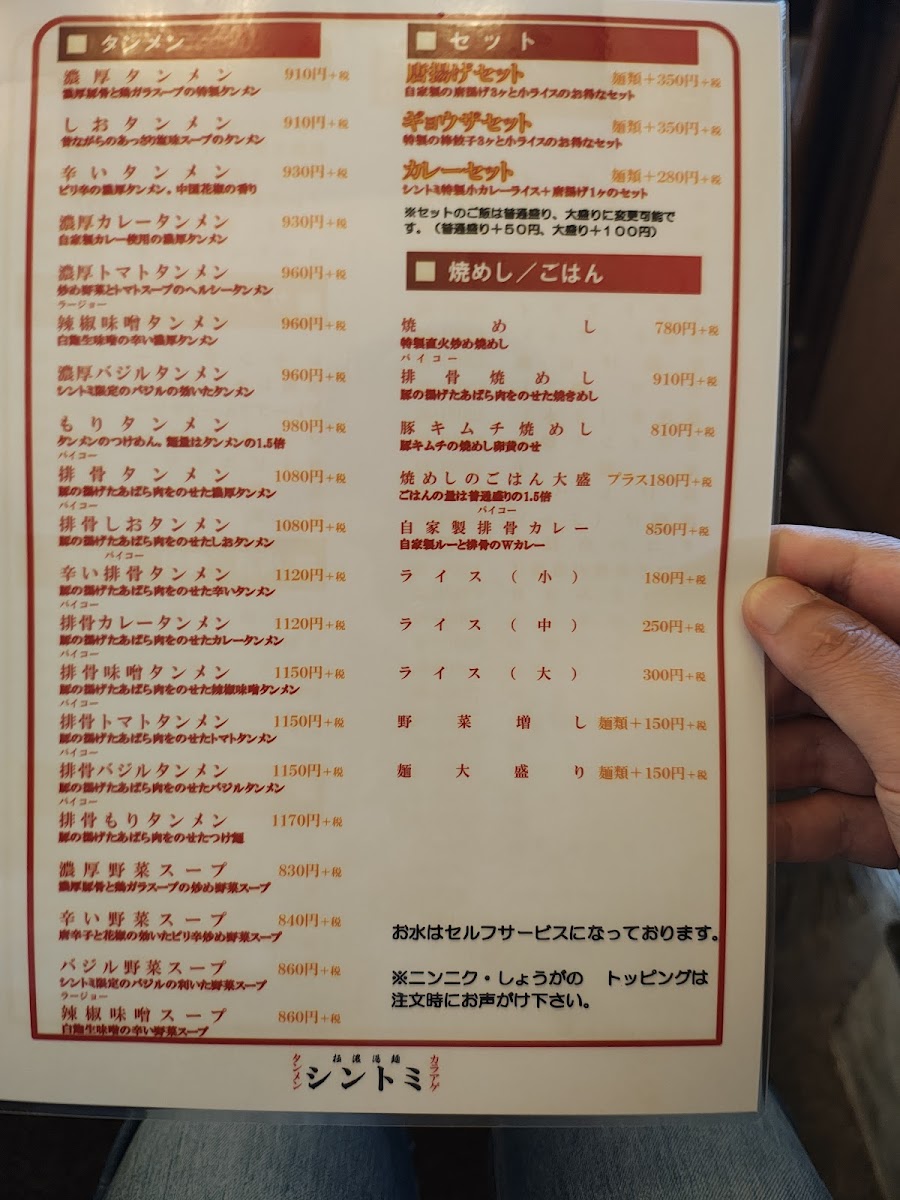 タンメン
濃厚タンメン 910円+税
濃厚豚骨と鶏ガラスープの特製タンメン
しおタンメン 910円+税
昔ながらのあっさり塩味スープのタンメン
辛いタンメン 930円+税
ピリ辛の濃厚タンメン。中国花椒の香り
濃厚カレータンメン 930円+税
自家製カレー使用の濃厚タンメン
濃厚トマトタンメン 960円+税
炒め野菜とトマトスープのヘルシータンメン
ラージョー
辣椒味噌タンメン 960円+税
白麹生味噌の辛い濃厚タンメン
濃厚バジルタンメン 960円+税
シントミ限定のバジルの効いたタンメン
もりタンメン 980円+税
タンメンのつけめん。麺量はタンメンの1.5倍
パイコー
排骨タンメン 1080円+税
豚の揚げたあばら肉をのせた濃厚タンメン
パイコー
排骨しおタンメン 1080円+税
豚の揚げたあばら肉をのせたしおタンメン
パイコー
辛い排骨タンメン 1120円+税
豚の揚げたあばら肉をのせた辛いタンメン
パイコー
排骨カレータンメン 1120円+税
豚の揚げたあばら肉をのせたカレータンメン
パイコー
排骨味噌タンメン 1150円+税
豚の揚げたあばら肉をのせた辣椒味噌タンメン
パイコー
排骨トマトタンメン 1150円+税
豚の揚げたあばら肉をのせたトマトタンメン
パイコー
排骨バジルタンメン 1150円+税
豚の揚げたあばら肉をのせたバジルタンメン
パイコー
排骨もりタンメン 1170円+税
豚の揚げたあばら肉をのせたつけ麺
濃厚野菜スープ 830円+税
濃厚豚骨と鶏ガラスープの炒め野菜スープ
辛い野菜スープ 840円+税
唐辛子と花椒の効いたピリ辛炒め野菜スープ
バジル野菜スープ 860円+税
シントミ限定のバジルの利いた野菜スープ
ラージョー
辣椒味噌スープ 860円+税
白麹生味噌の辛い野菜スープ
セット
唐揚げセット 麺類+350円+税
自家製の唐揚げ3ヶと小ライスのお得なセット
ギョウザセット 麺類+350円+税
特製の棒餃子3ヶと小ライスのお得なセット
カレーセット 麺類+280円+税
シントミ特製小カレーライス+唐揚げ1ヶのセット
※セットのご飯は普通盛り、大盛りに変更可能で
す。（普通盛り+50円、大盛り+100円）
焼めし／ごはん
焼めし 780円+税
特製直火炒め焼めし
パイコー
排骨焼めし 910円+税
豚の揚げたあばら肉をのせた焼きめし
豚キムチ焼めし 810円+税
豚キムチの焼めし卵黄のせ
焼めしのごはん大盛 プラス180円+税
ごはんの量は普通盛りの1.5倍
パイコー
自家製排骨カレー 850円+税
自家製ルーと排骨のWカレー
ライス（小） 180円+税
ライス（中） 250円+税
ライス（大） 300円+税
野菜増し 麺類+150円+税
麺大盛り 麺類+150円+税
お水はセルフサービスになっております。
※ニンニク・しょうがの トッピングは
注文時にお声がけ下さい。
極濃湯麺
タンメン シントミ カラアゲ